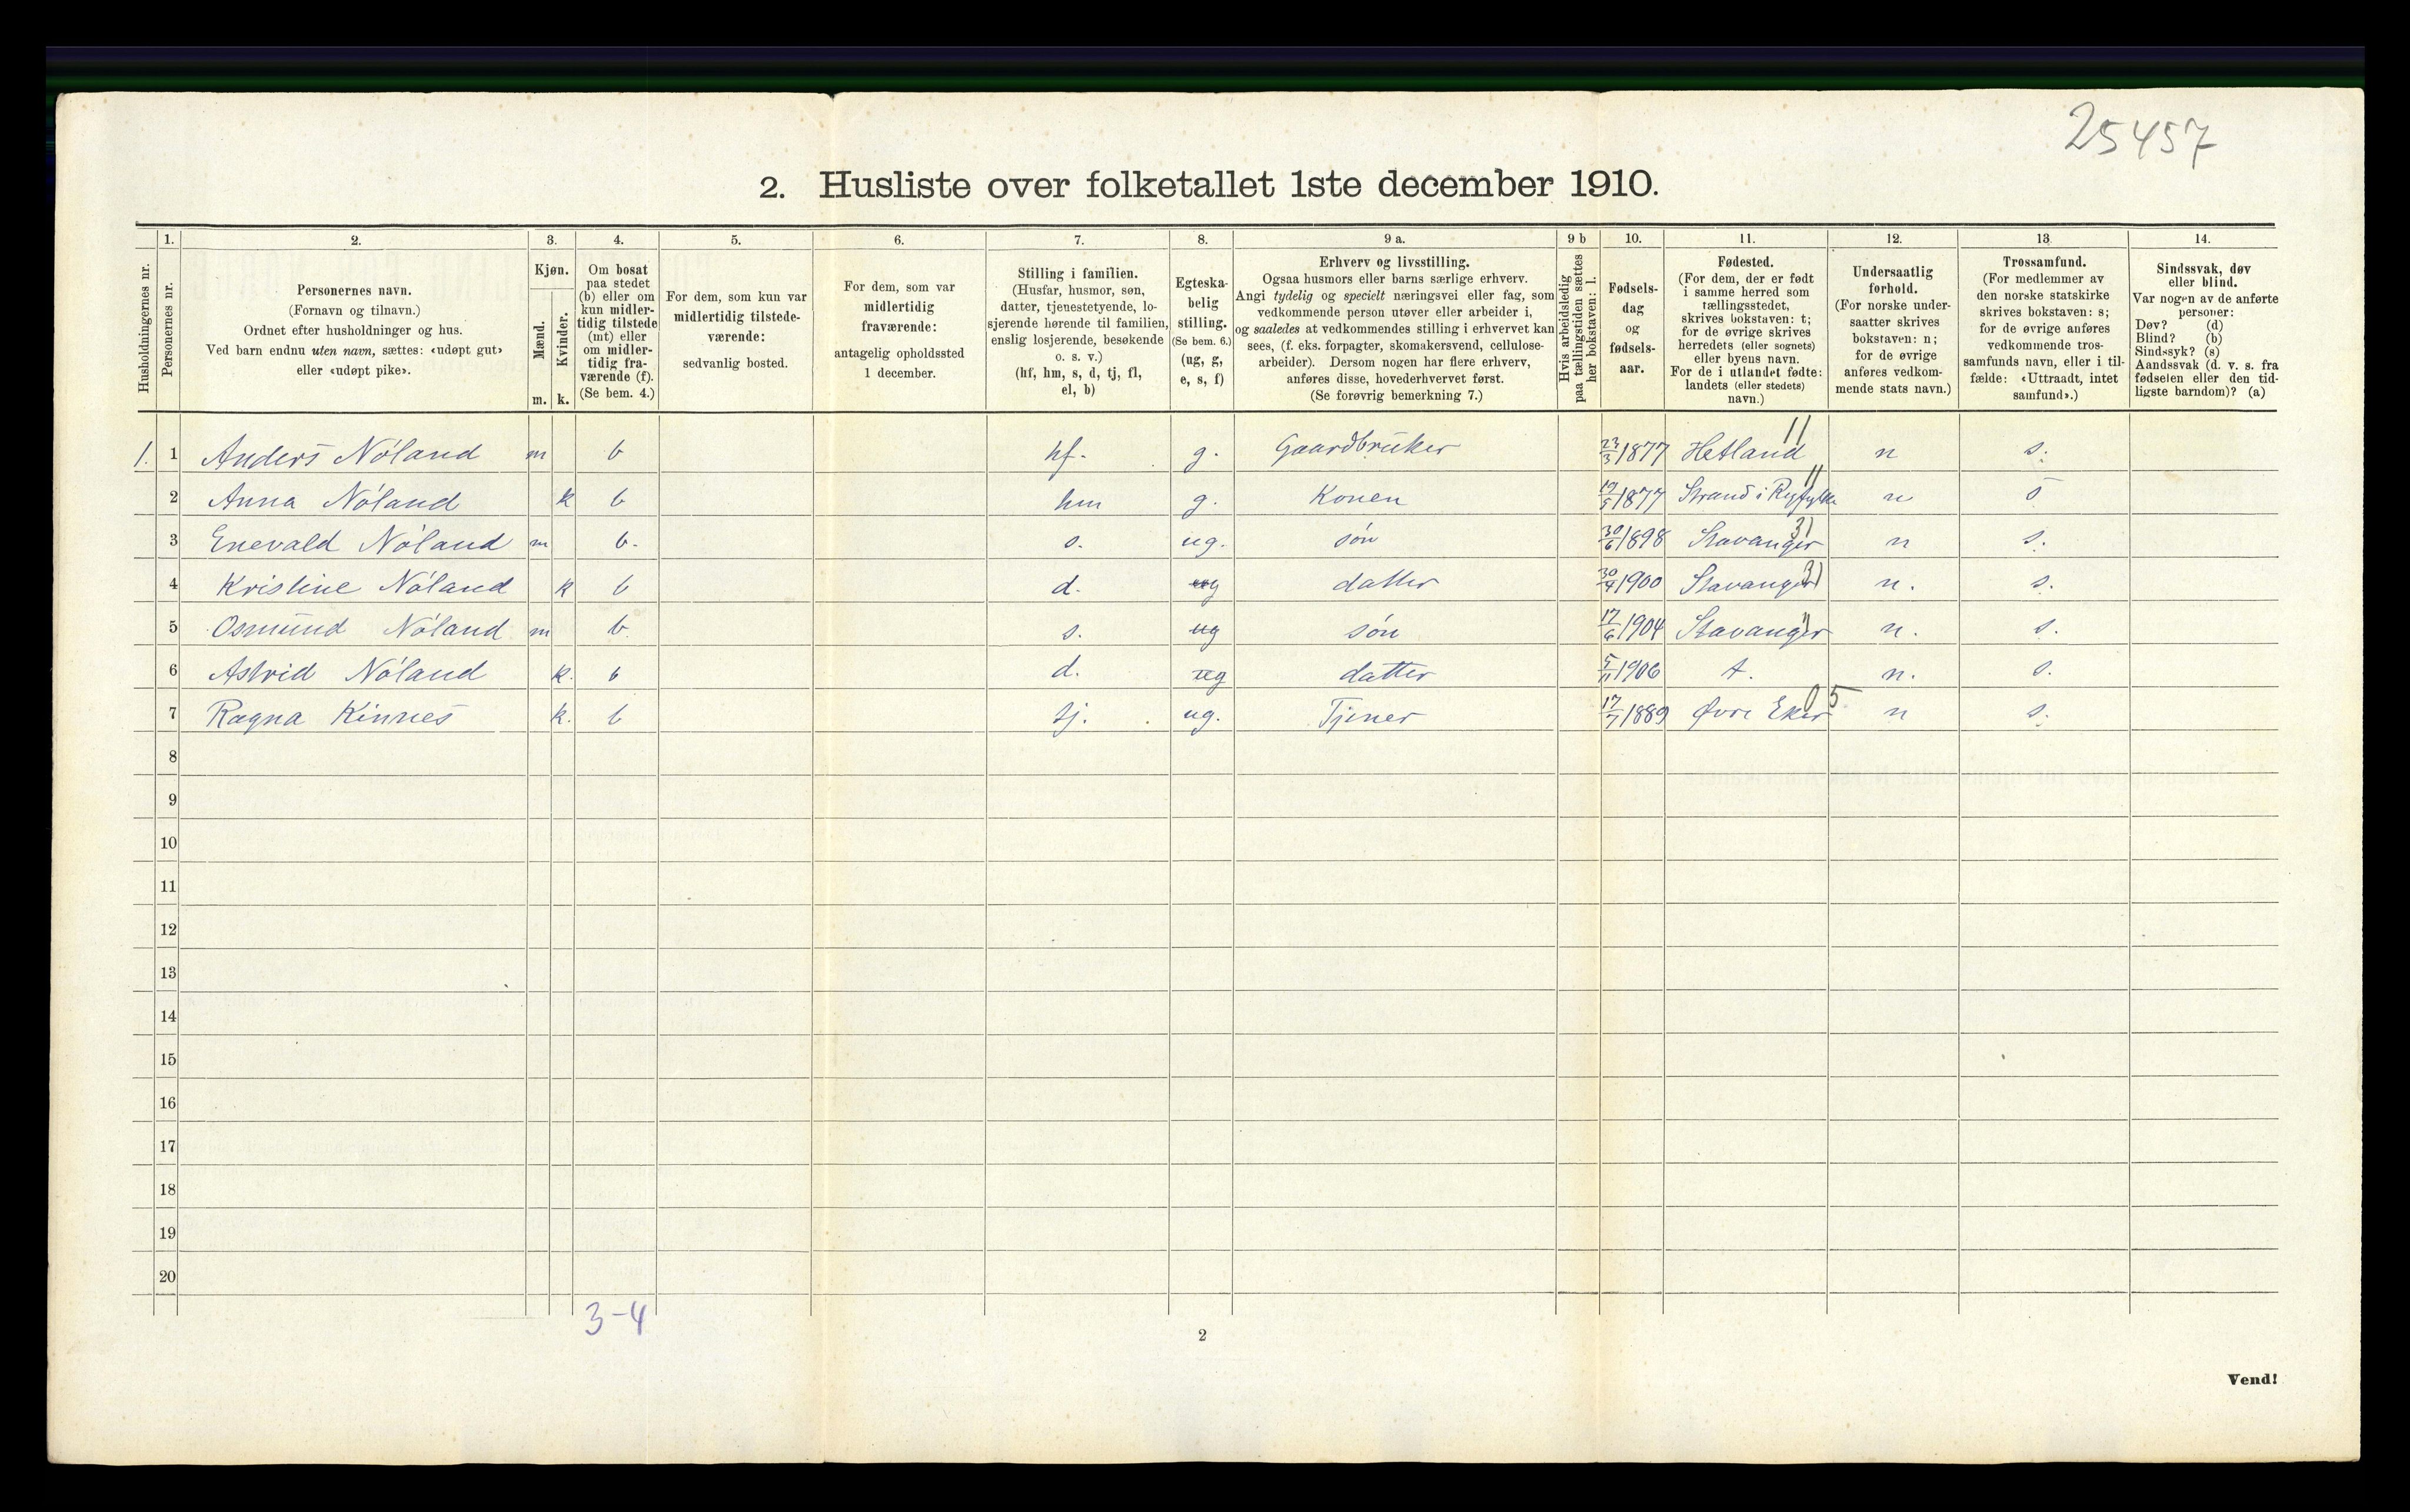 25457
2. Husliste over folketallet 1ste december 1910.
Husholdningernes nr.
1.
Personernes nr.
2.
Personernes navn.
(Fornavn og tilnavn.)
Ordnet efter husholdninger og hus.
Ved barn endnu uten navn, sættes: «udøpt gut»
eller «udøpt pike».
3.
Kjøn.
Mænd.
Kvinder.
m. k.
4.
Om bosat
paa stedet
(b) eller om
kun midler-
tidig tilstede
(mt) eller
om midler-
tidig fra-
værende (f).
(Se bem. 4.)
5.
For dem, som kun var
midlertidig tilstede-
værende:
sedvanlig bosted.
6.
For dem, som var
midlertidig
fraværende:
antagelig opholdssted
1 december.
7.
Stilling i familien.
(Husfar, husmor, søn,
datter, tjenestetyende, lo-
sjerende hørende til familien,
enslig losjerende, besøkende
o. s. v.)
(hf, hm, s, d, tj, fl,
el, b)
8.
Egteska-
belig
stilling.
(Se bem. 6.)
(ug, g,
e, s, f)
9 a.
Erhverv og livsstilling.
Ogsaa husmors eller barns særlige erhverv.
Angi tydelig og specielt næringsvei eller fag, som
vedkommende person utøver eller arbeider i,
og saaledes at vedkommendes stilling i erhvervet kan
sees, (f. eks. forpagter, skomakersvend, cellulose-
arbeider). Dersom nogen har flere erhverv,
anføres disse, hovederhvervet først.
(Se forøvrig bemerkning 7.)
9 b
Hvis arbeidsledig
paa tællingstiden sættes
her bokstaven: l.
10.
Fødsels-
dag
og
fødsels-
aar.
11.
Fødested.
(For dem, der er født
i samme herred som
tællingsstedet,
skrives bokstaven: t;
for de øvrige skrives
herredets (eller sognets)
eller byens navn.
For de i utlandet fødte:
landets (eller stedets)
navn.)
12.
Undersaatlig
forhold.
(For norske under-
saatter skrives
bokstaven: n;
for de øvrige
anføres vedkom-
mende stats navn.)
13
Trossamfund.
(For medlemmer av
den norske statskirke
skrives bokstaven: s;
for de øvrige anføres
vedkommende tros-
samfunds navn, eller i til-
fælde: «Uttraadt, intet
samfund».)
14.
Sindssvak, døv
eller blind.
Var nogen av de anførte
personer:
Døv? (d)
Blind? (b)
Sindssyk? (s)
Aandssvak (d. v. s. fra
fødselen eller den tid-
ligste barndom)? (a)
1. 1 Anders Nóland m b hf. g. Gaardbruker 23/3 1877 Hetland 11 n s.
2 Anna Nóland k b hm g. Konen 1877 Strand i Ryfylke 11 n
3 Enevald Nóland m b. s. ug. søn 30/6 1898 Stavanger 31 n s.
4 Kristine Nóland k b d. ug datter 1900 Stavanger 31 n. s.
5 Osmund Nóland m b. s. ug søn 17/6 1904 Stavanger n. s.
6 Astrid Nóland k. b d. ug datter 5/11 1906 t. n. s.
7 Ragna Kinnes k. b tj. ug. Tjener 17/7 1889 Øvre Eker 05 n s.
8
9
10
11
12
13
14
15
16
17
18
19
20
3-4
2
Vend!